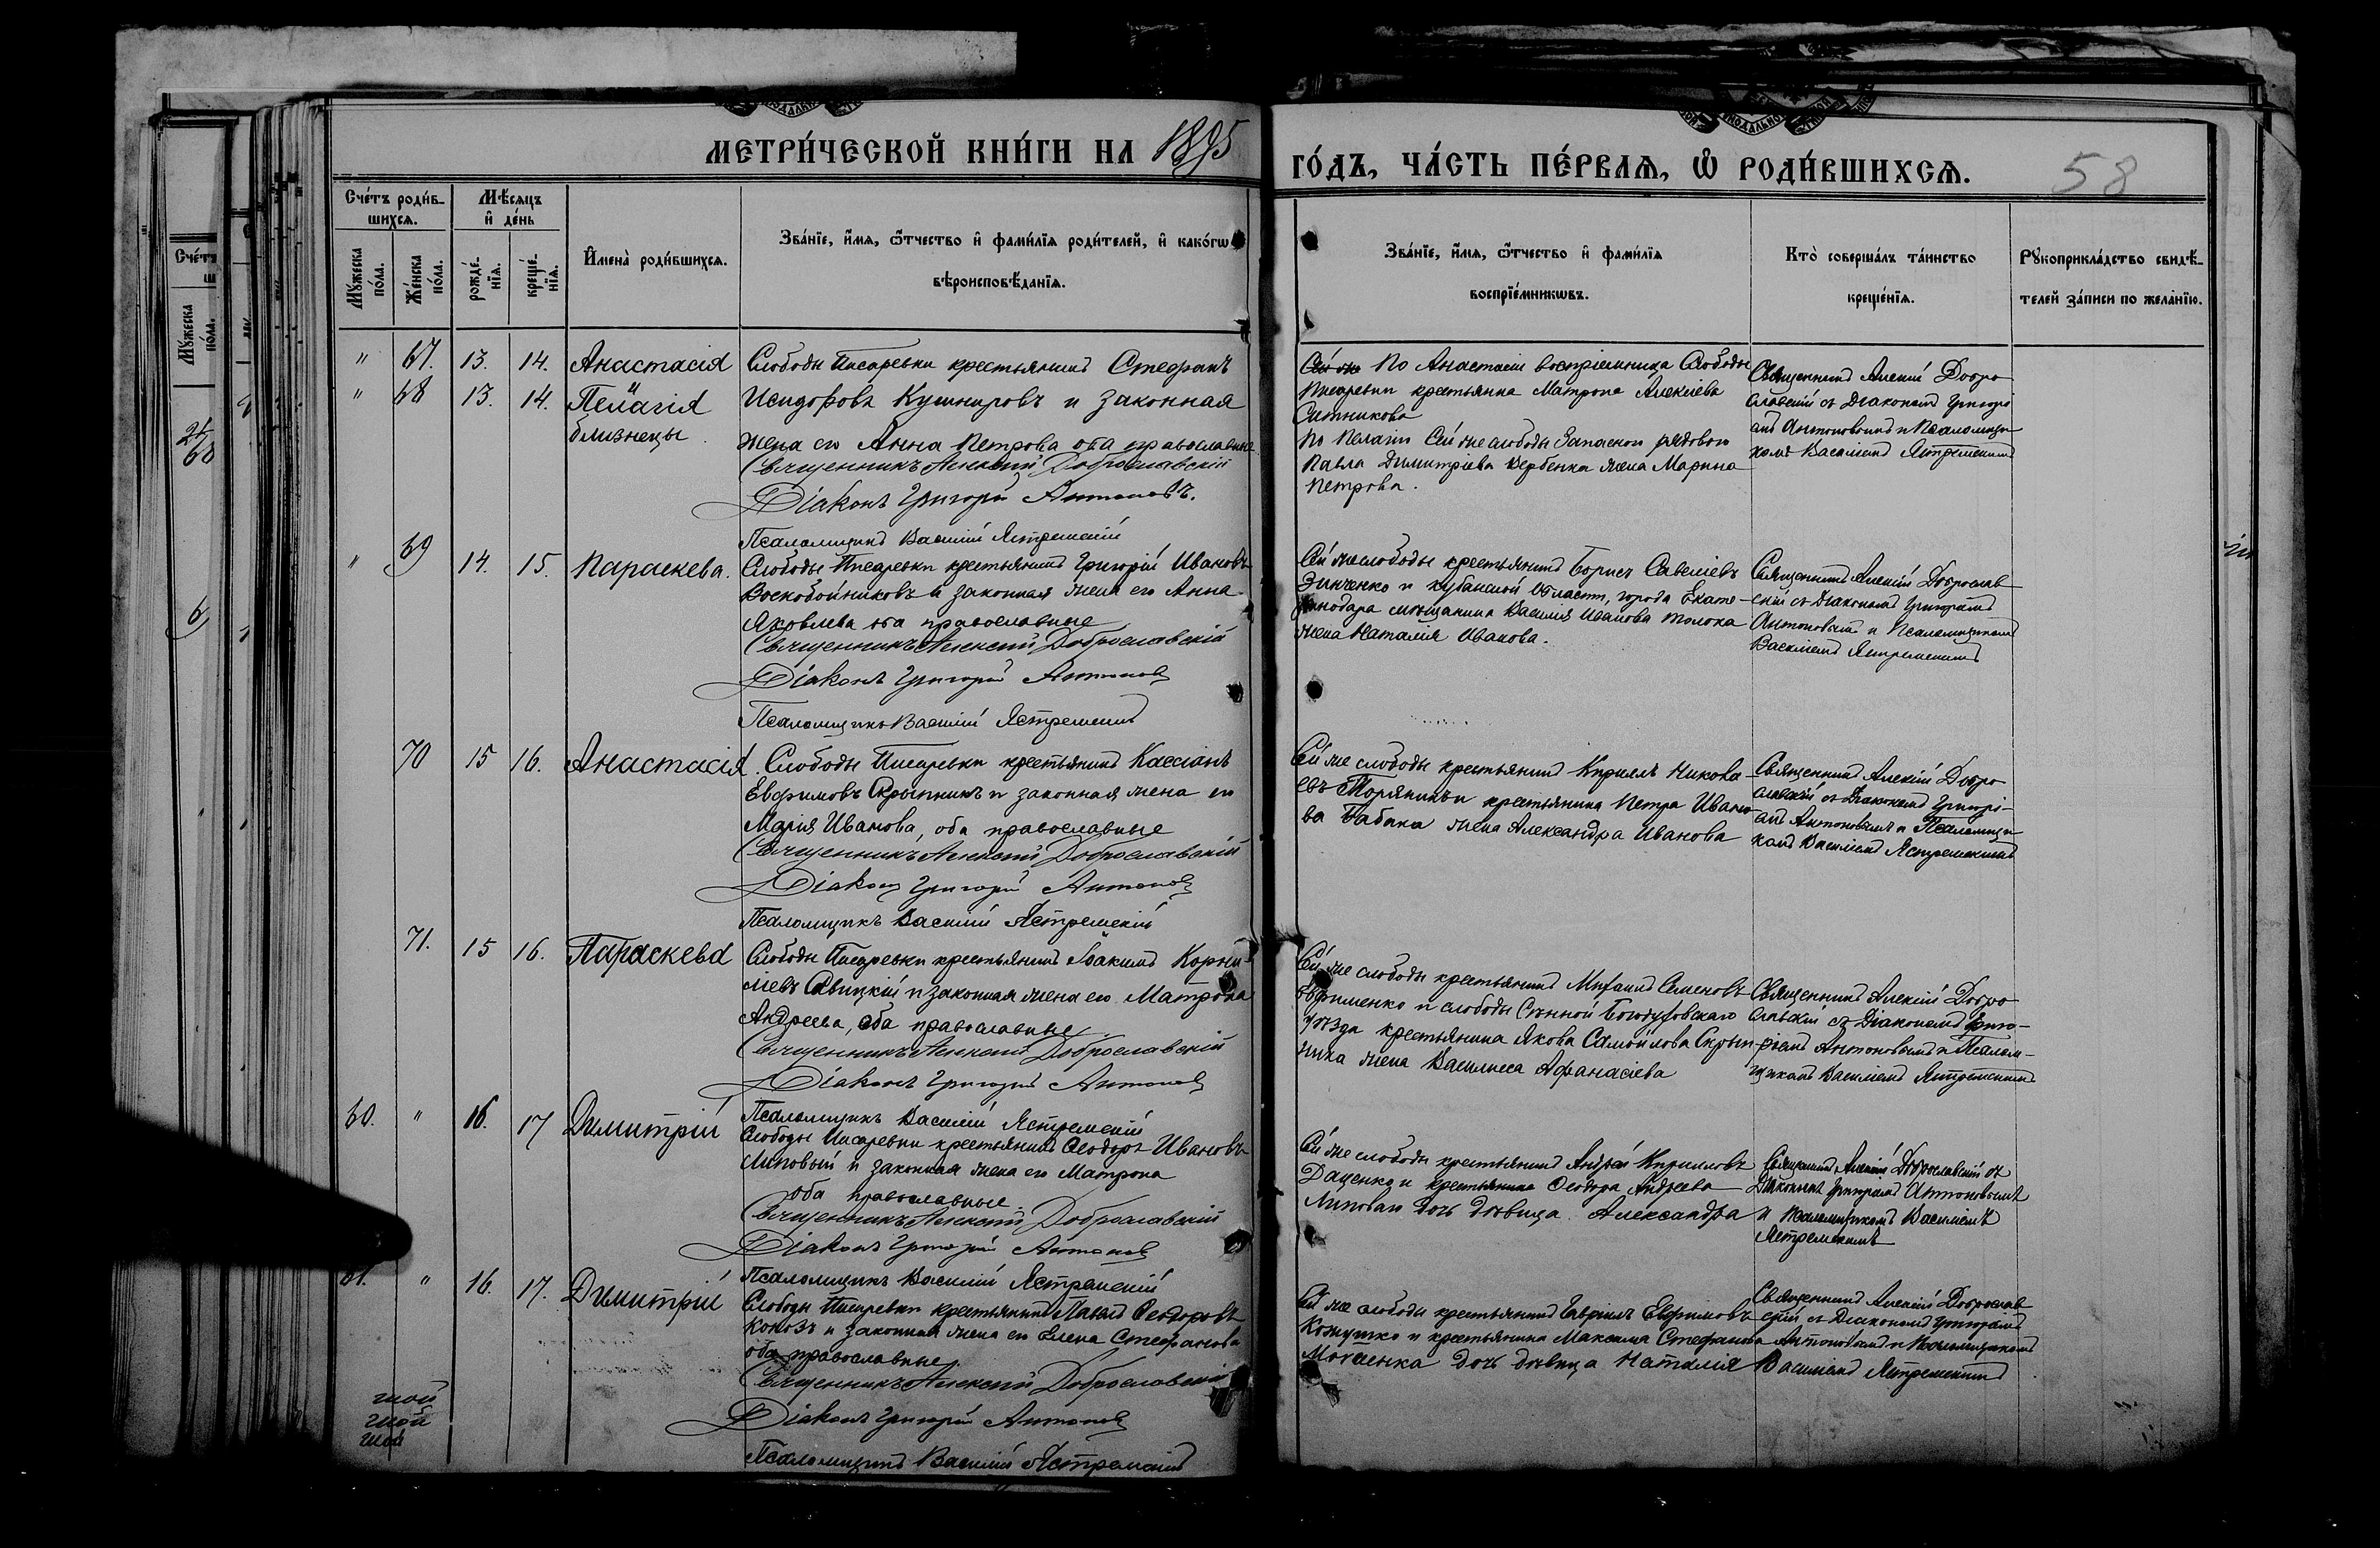 МЕТРИ́ЧЕСКОЙ КНИ́ГИ НА 1895
ГО́ДЪ, ЧА́СТЬ ПЕ́РВАЯ, Ѽ РОДИ́ВШИХСЯ.
58
Сче́тъ роди́в-
шихся.
Мѣ́сяцъ
и҆ де́нь
Мꙋ́жеска
по́ла.
Же́нска
по́ла.
рожде́-
нїя.
креще́-
нїя.
И҆мена̀ роди́вшихся.
Зва́нїе, и҆́мя, ѻ҆́тчество и҆ фамї́лїя роди́телей, и҆ како́гѡ
вѣроисповѣ́данїя.
Зва́нїе, и҆́мя, ѻ҆́тчество и҆ фамї́лїя
воспрїе́мникѡвъ.
Кто̀ соверша́лъ та́инство
креще́нїя.
Рꙋкоприкла́дство свидѣ́-
телей за́писи по жела́нїю.
" 67. 13. 14. Анастасія
" 68 13. 14. Пелагія
близнецы.
Слободы Писаревки крестьянинъ Стефанъ
Исидоровъ Кушнировъ и законная
жена его Анна Петрова оба православные
Священникъ Алексій Доброславскій
Діаконъ Григорій Антоновъ.
Псаломщикъ Василій Ястремскій
По Анастасіи воспріемница Слободы
Писаревки крестьянка Матрона Алексіева
Ситникова
По Пелагіи Сей же слободы Запаснои рядовои
Павла Димитріева Вербенка жена Марина
Петрова.
Священникъ Алексій Добро
славскій съ Діакономъ Григорі
емъ Антоновымъ и Псаломщи
комъ Василіемъ Ястремскимъ
" 69 14. 15. Параскева.
Слободы Писаревки крестьянинъ Григорій Ивановъ
Воскобойниковъ и законная жена его Анна
Яковлева оба православные
Священникъ Алексій Доброславскій
Діаконъ Григорій Антоновъ
Псаломщикъ Василій Ястремскій
Сей же слободы крестьянинъ Борисъ Савеліевъ
Зинченко и Кубанской Области, города Екате-
ринодара мѣщанина Василія Иванова Толока
жена Наталія Иванова.
Священникъ Алексій Доброслав
скій съ Діакономъ Григоріемъ
Антоновымъ и Псаломщикомъ
Василіемъ Ястремскимъ
70 15 16. Анастасія.
Слободы Писаревки крестьянинъ Кассіанъ
Евфимовъ Скрыпникъ и законная жена его
Марія Иванова, оба православные
Священникъ Алексій Доброславскій
Діаконъ Григорій Антоновъ
Псаломщикъ Василій Ястремскій
Сей же слободы крестьянинъ Кириллъ
крестьянина Петра Ивано-
ва Бабака жена Александра Иванова
Священникъ Алексій Добро
славскій съ Діакономъ Григорі-
емъ Антоновымъ и Псаломщи
комъ Василіемъ Ястремскимъ
71. 15 16. Параскева
Слободы Писаревки крестьянинъ Іоакимъ Корни-
ліевъ Савицкій и законная жена его Матрона
Андреева, оба православные
Священникъ Алексій Доброславскій
Діаконъ Григорій Антоновъ
Псаломщикъ Василій Ястремскій
Сей же слободы крестьянинъ Михаилъ Семеновъ
Евфименко и слободы Сѣнной Богодуховскаго
уѣзда крестьянина Якова Самойлова Скрып-
ника жена Василисса Афанасіева
Священникъ Алексій Добро
славскій съ Діакономъ Григо-
ріемъ Антоновымъ и Псалом-
щикомъ Василіемъ Ястремскимъ
60. " 16. 17 Димитрій
Слободы Писаревки крестьянинъ Ѳеодоръ Ивановъ
Липовый и законная жена его Матрона
оба православные.
Священникъ Алексій Доброславскій
Діаконъ Григорій Антоновъ
Псаломщикъ Василій Ястремскій
Сей же слободы крестьянинъ Андрей Кирилловъ
Даценко и крестьянина Ѳеодора Андреева
Липоваго дочь дѣвица Александра
Священникъ Алексій Доброславскій съ
Діакономъ Григоріемъ Антоновымъ
и Псаломщикомъ Василіемъ
Ястремскимъ
61. " 16. 17. Димитрій
Слободы Писаревки крестьянинъ Павелъ Ѳеодоровъ
и законная жена его Елена Стефанова
оба православные.
Священникъ Алексій Доброславскій
Діаконъ Григорій Антоновъ
Псаломщикъ Василій Ястремскій
Сей же слободы крестьянинъ Гавріилъ Евфимовъ
Кожушко и крестьянина Максима Стефанова
дочь дѣвица Наталія
Священникъ Алексій Доброслав
скій съ Діакономъ Григоріемъ
Антоновымъ и Псаломщикомъ
Василіемъ Ястремскимъ